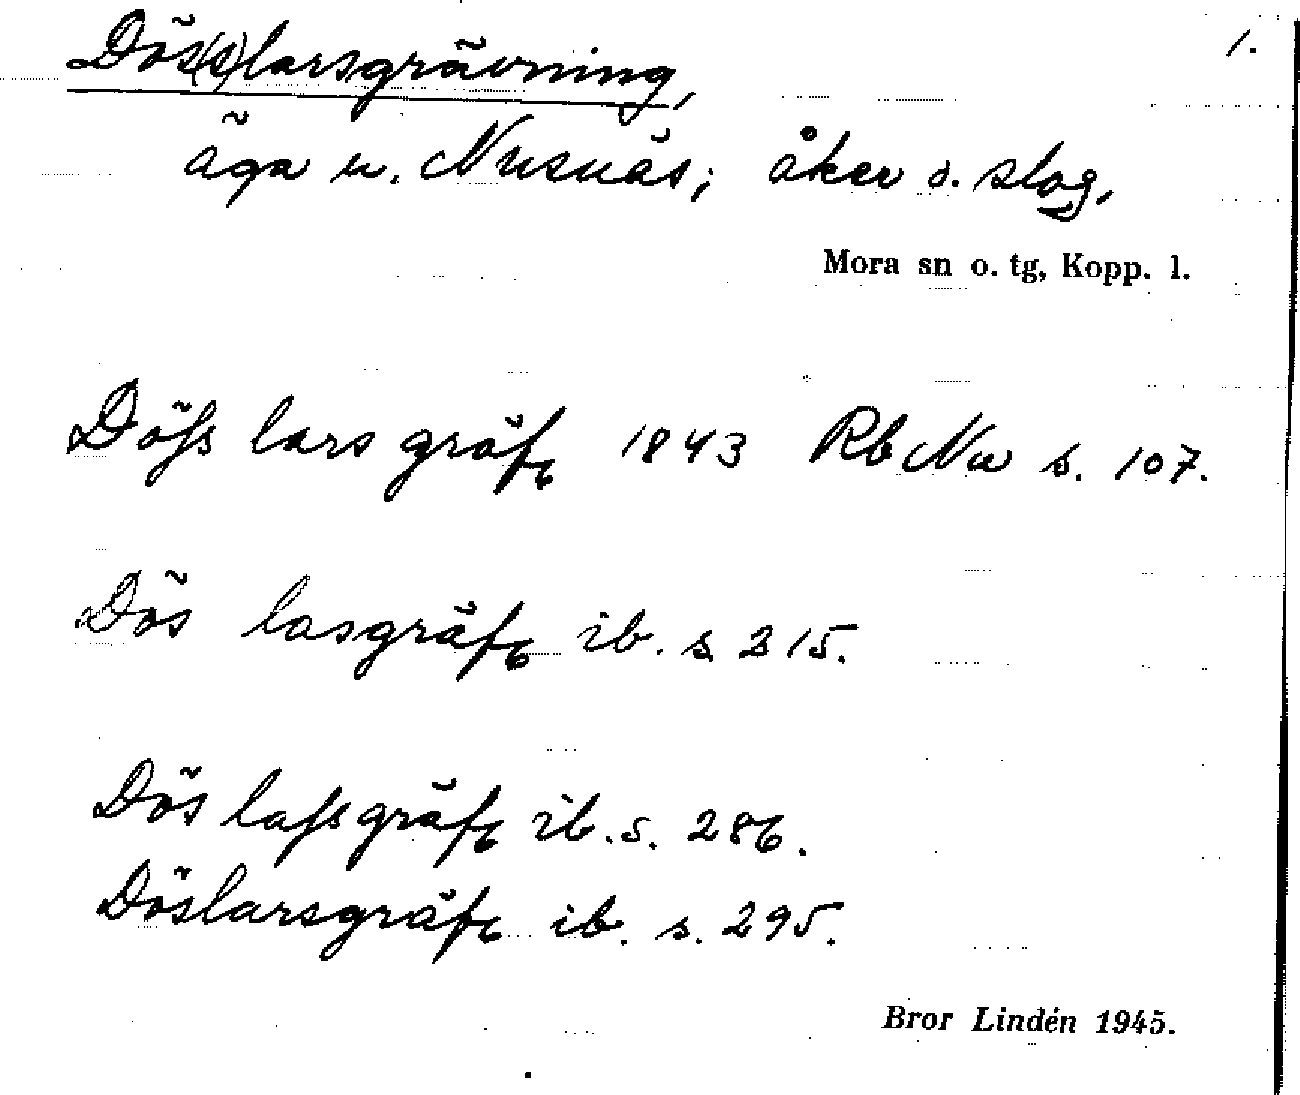 1.
Dös(s)larsgrävning,
äga u. Nusnäs; åker o. slog,
Mora sn o. tg, Kopp. l.
Döss lars gräfg 1843 Rb Nu s. 107.
Dös lasgräfg ib. s 215.
Dös lassgräfg ib. s. 286.
Döslarsgräfg ib. s. 295.
Bror Lindén 1945.